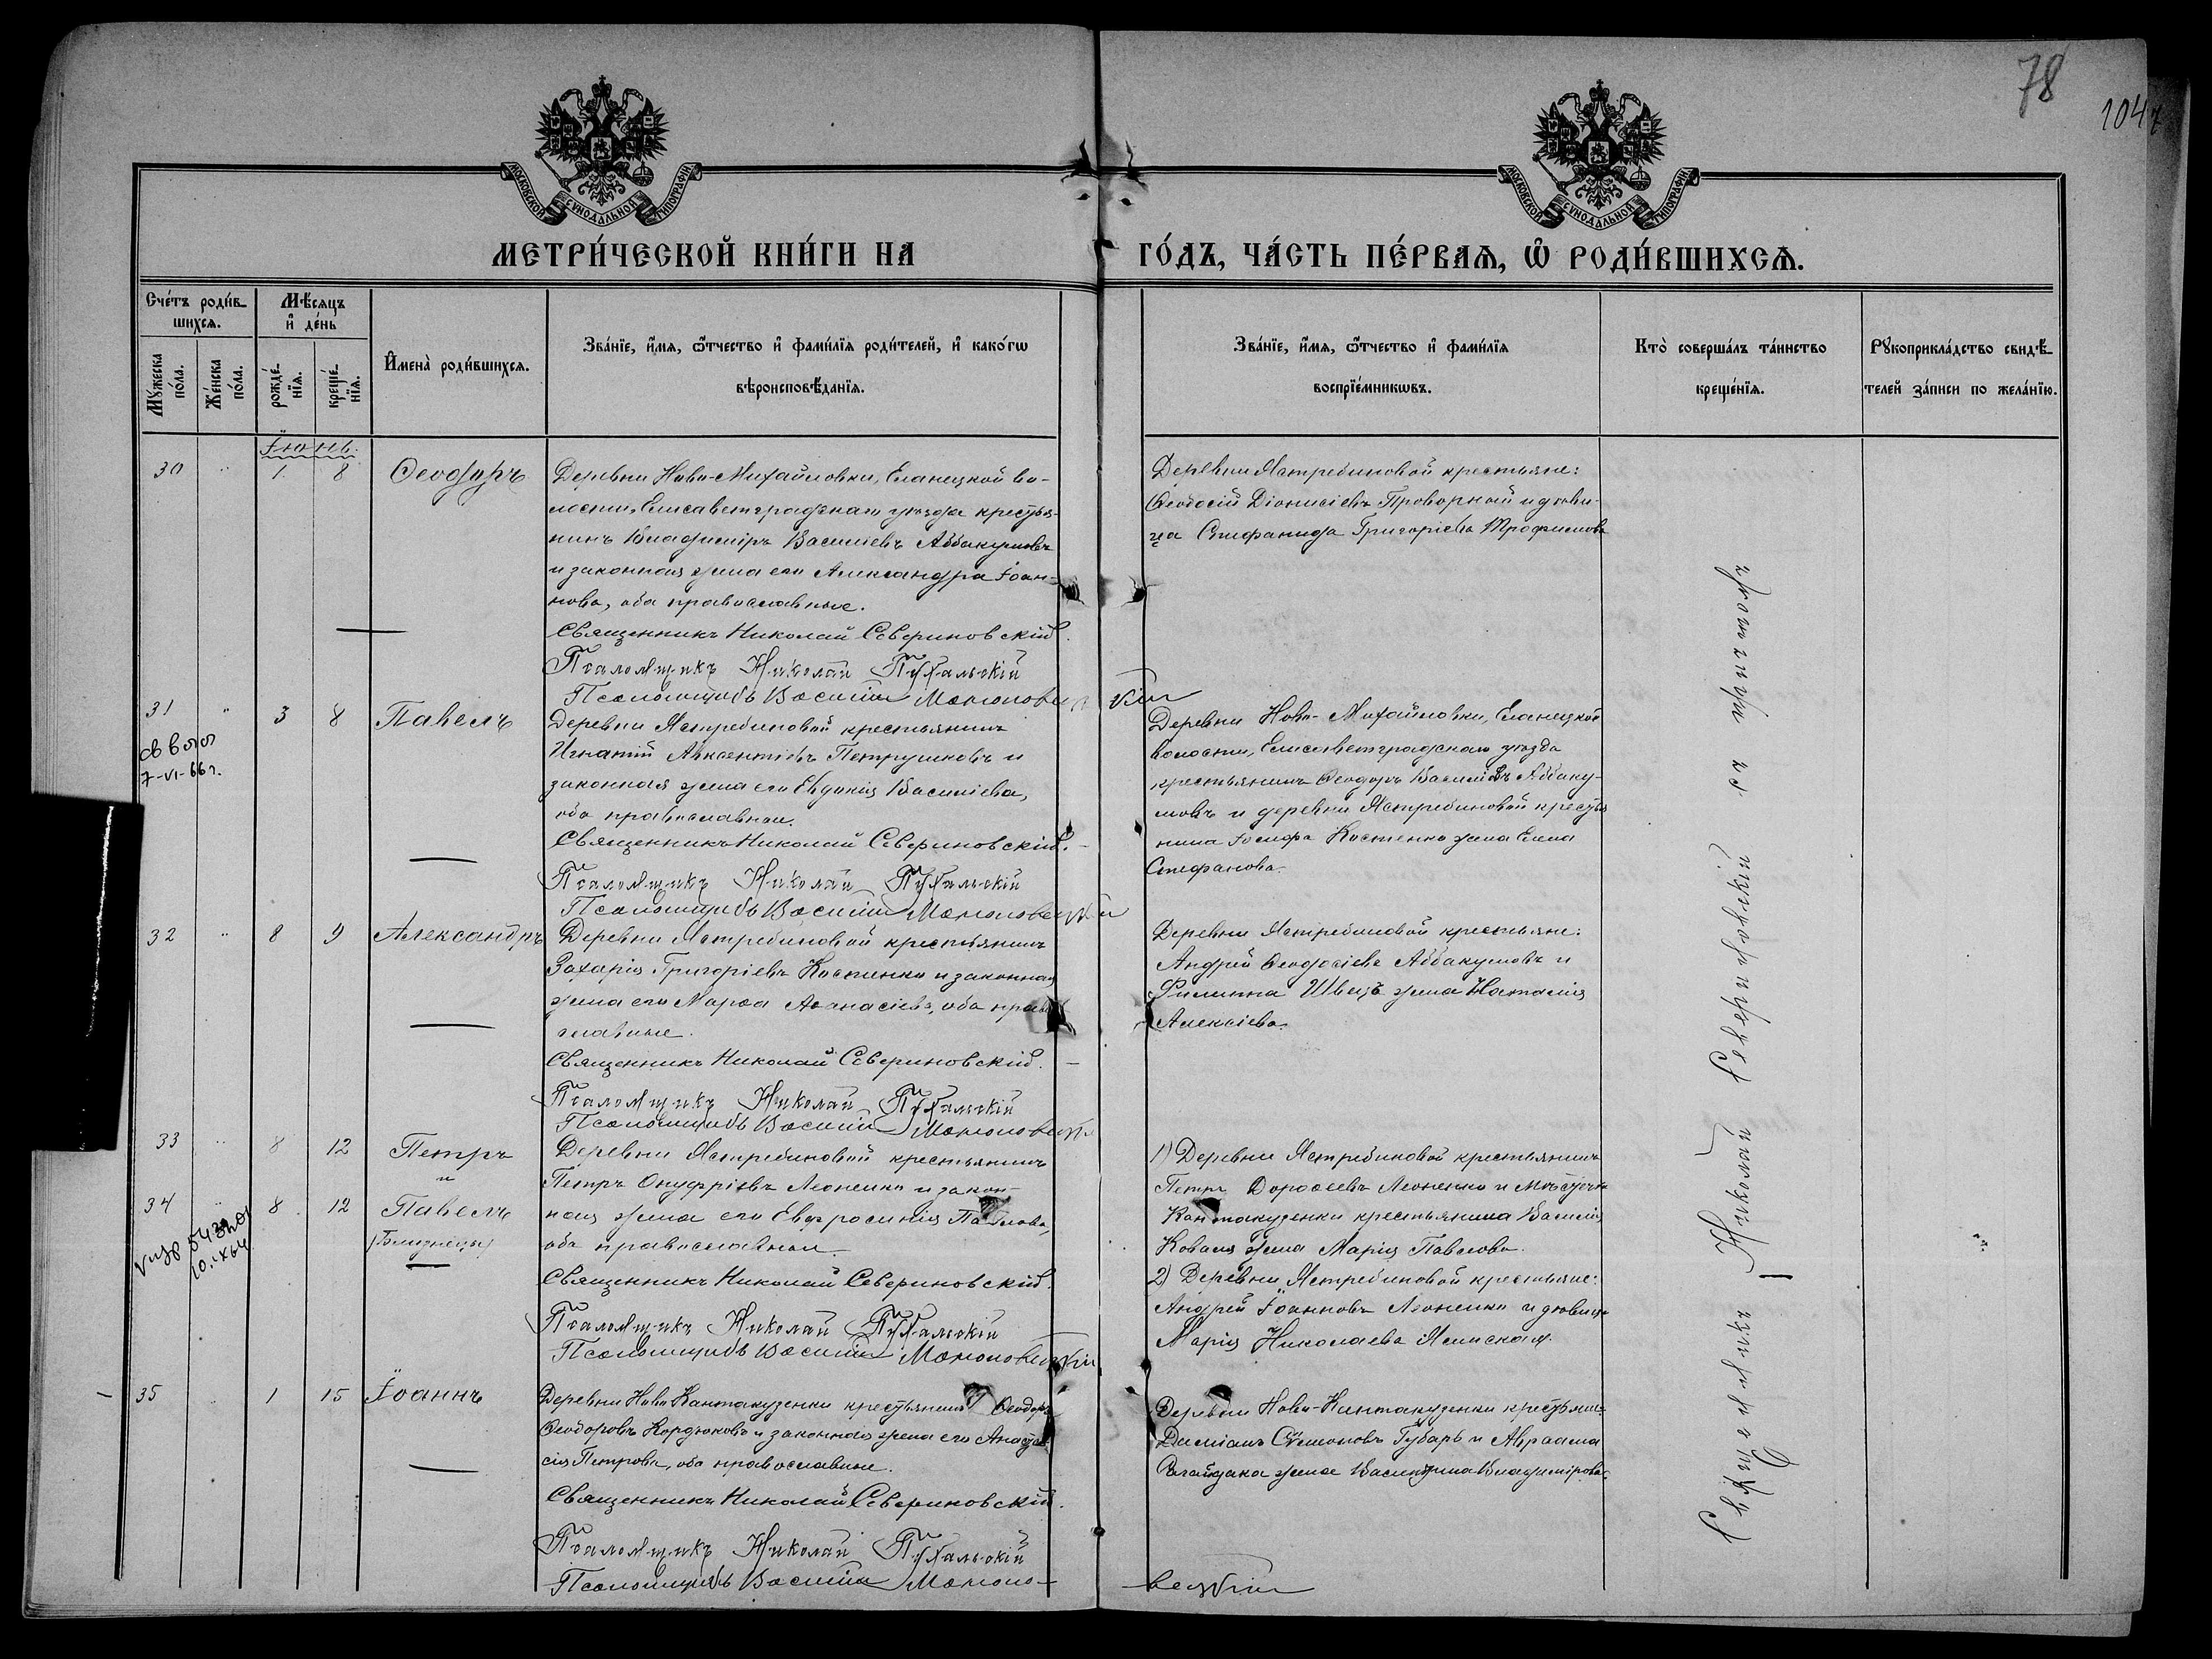 78
1047
МОСКОВСКОЙ СѴНОДАЛЬНОЙ ТИПОГРАФІИ
МОСКОВСКОЙ СѴНОДАЛЬНОЙ ТИПОГРАФІИ
МЕТРИ́ЧЕСКОЙ КНИ́ГИ НА ГО́ДЪ, ЧА́СТЬ ПЕ́РВАѦ, Ѽ РОДИ́ВШИХСѦ.
Сче́тъ роди́в-
шихсѧ.
Мꙋ́жеска по́ла.
Же́нска по́ла.
Мѣ́сѧцъ
и҆ де́нь
рожде́-
нїѧ.
креще́-
нїѧ.
И҆мена̀ роди́вшихсѧ.
Зва́нїе, и҆́мѧ, ѻ҆́тчество и҆ фами́лїѧ роди́телей, и҆ како́гѡ
вѣроисповѣ́данїѧ.
Зва́нїе, и҆́мѧ, ѻ҆́тчество и҆ фами́лїѧ
воспрїе́мникѡвъ.
Кто̀ соверша́лъ та́инство
креще́нїѧ.
Рꙋкоприкла́дство свидѣ́-
телей за́писи по жела́нїю.
Іюнь.
30 " 1. 8 Ѳеодоръ
Деревни Ново-Михайловки, Еланецкой во-
лости, Елисаветградскаго уѣзда крестья-
нинъ Владиміръ Василіевъ Аббакумовъ
и законная жена его Александра Іоан-
нова, оба православные.
Священникъ Николай Севериновскій.
Псаломщикъ Николай
Псаломщикъ Василій
Деревни Ястребиновой крестьяне:
Ѳеодосій Діонисіевъ Проворный и дѣви-
ца Стефанида Григоріева Трофимова
31 " 3 8 Павелъ
св во
7-VI-66 г.
Деревни Ястребиновой крестьянинъ
Игнатій Авксентіевъ Петрушковъ и
законная жена его Евдокія Василіева,
оба православные.
Священникъ Николай Севериновскій.
Псаломщикъ Николай
Псаломщикъ Василій
Деревни Ново-Михайловки, Еланецкой
волости, Елисаветградскаго уѣзда
крестьянинъ Ѳеодоръ Василіевъ Аббаку-
мовъ и деревни Ястребиновой крестья
нина Іосифа Костенко жена Елена
Стефанова.
32 " 8 9 Александръ
Деревни Ястребиновой крестьянинъ
Захарія Григоріевъ Костенко и законная
жена его Марѳа Аѳанасіева, оба право
славные.
Священникъ Николай Севериновскій.
Псаломщикъ Николай
Псаломщикъ Василій
Деревни Ястребиновой крестьяне:
Андрей Ѳеодосіевъ Аббакумовъ и
Филиппа Швецъ жена Наталія
Алексіева.
33 " 8 12 Петръ
и
34 " 8 12 Павелъ
(Близнецы)
Деревни Ястребиновой крестьянинъ
Петръ Онуфріевъ Леоненко и закон-
ная жена его Евфросинія Павлова,
оба православные.
Священникъ Николай Севериновскій.
Псаломщикъ Николай
Псаломщикъ Василій
1) Деревни Ястребиновой крестьянинъ
Петръ Дороѳеевъ Леоненко и мѣстечка
Кантакузенки крестьянина Василія
Коваля жена Марія Павлова.
2) Деревни Ястребиновой крестьяне:
Андрей Іоанновъ Леоненко и дѣвица
Марія Николаева
35 " 1 15 Іоаннъ
Деревни Ново Кантакузенки крестьянинъ Ѳеодоръ
Ѳеодоровъ Кордюковъ и законная жена его Анаста-
сія Петрова, оба православные.
Священникъ Николай Севериновскій.
Псаломщикъ Николай
Псаломщикъ Василій
Деревни Ново-Кантакузенки крестьяне:
Даміанъ Сѵмеоновъ Губарь и Авраама
жена Владимірова
Священникъ Николай Севериновскій съ причтомъ